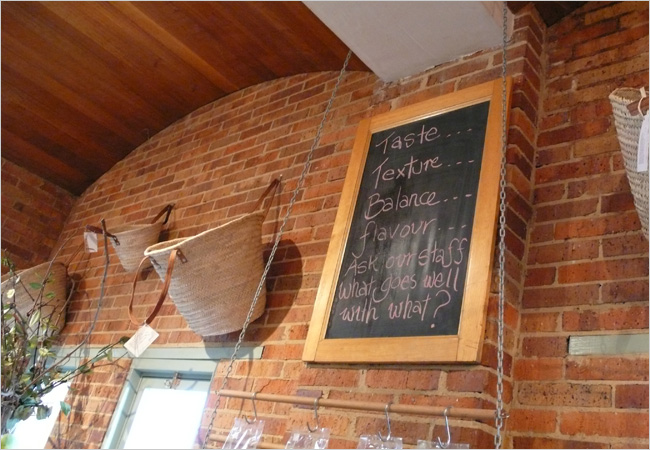 Taste....
Texture....
Balance....
flavour...
Ask our staff
what goes well
with what?